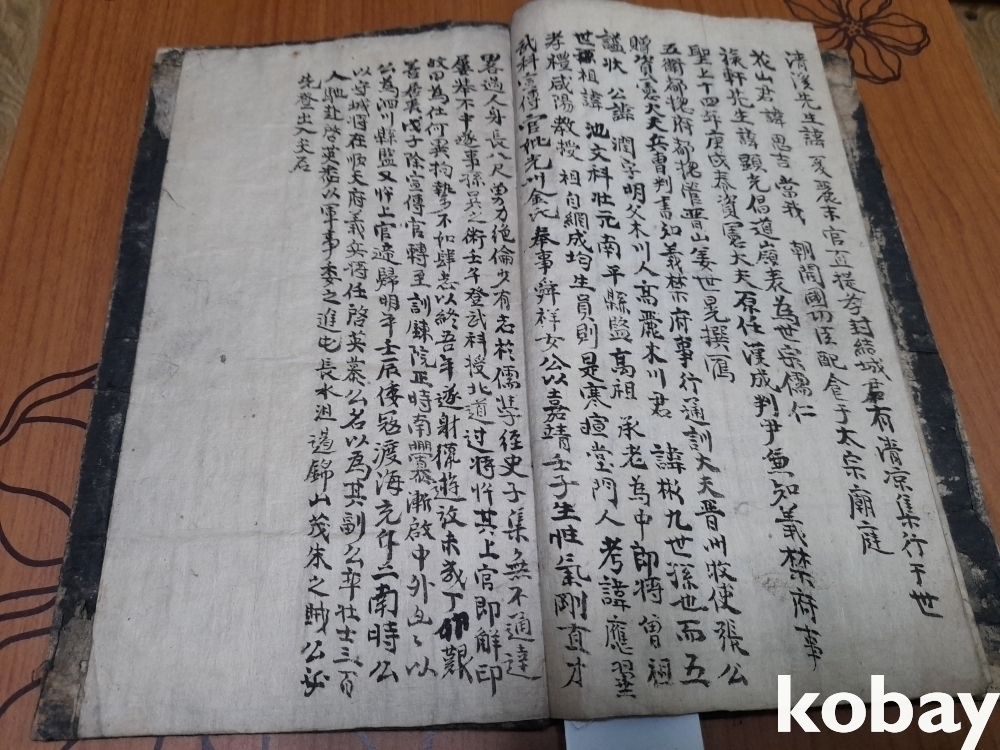 清溪先生諱 夏麗末官直提學封結城君有清京集行于世
花山君諱思吉當我 朝開國功臣配食于太宗廟庭
先生諱顯光倡道嶺表為世宗儒仁
聖上十四年庚戌奉資憲大夫原任漢成判尹兼知義禁府事
五衛都摠府都摠管晋山姜世晃撰
贈資憲大夫兵曹判書知義禁府事行通訓大夫晋州牧使張公
諡狀 公諱潤字明父木川人高麗木川君 諱彬九世孫也而五
世祖諱 池文科壯元南平縣監高祖 承老為中郎將曾祖
孝禮咸陽教授 祖自綱成均生員則是寒暄堂門人 考諱應翼
武科宣傳官妣光州金氏奉事舜祥女公以嘉靖壬子生性氣剛直才
畧過人身長八尺勇力絶倫少有志於儒學經史子集無不通達
屢擧不中遂事孫吳之術壬午登武科授北道過將忤其上官即解印
歸田為仕何舞拘摯不如肆志以終吾年遂射獵遊放未幾丁 艱
善居喪戊子除宣傳官轉至訓鍊院正時南釁漸啟中外以
公為泗川縣監又忤上官遞歸明年壬辰倭寇渡海充斥二南時公
以守城將在順天府義兵將任啓英慕公名以為其副公率壯士三百
人馳赴啓英悉以軍事委之進屯長水沮遏錦山茂朱之賊公必
先登出入矢石